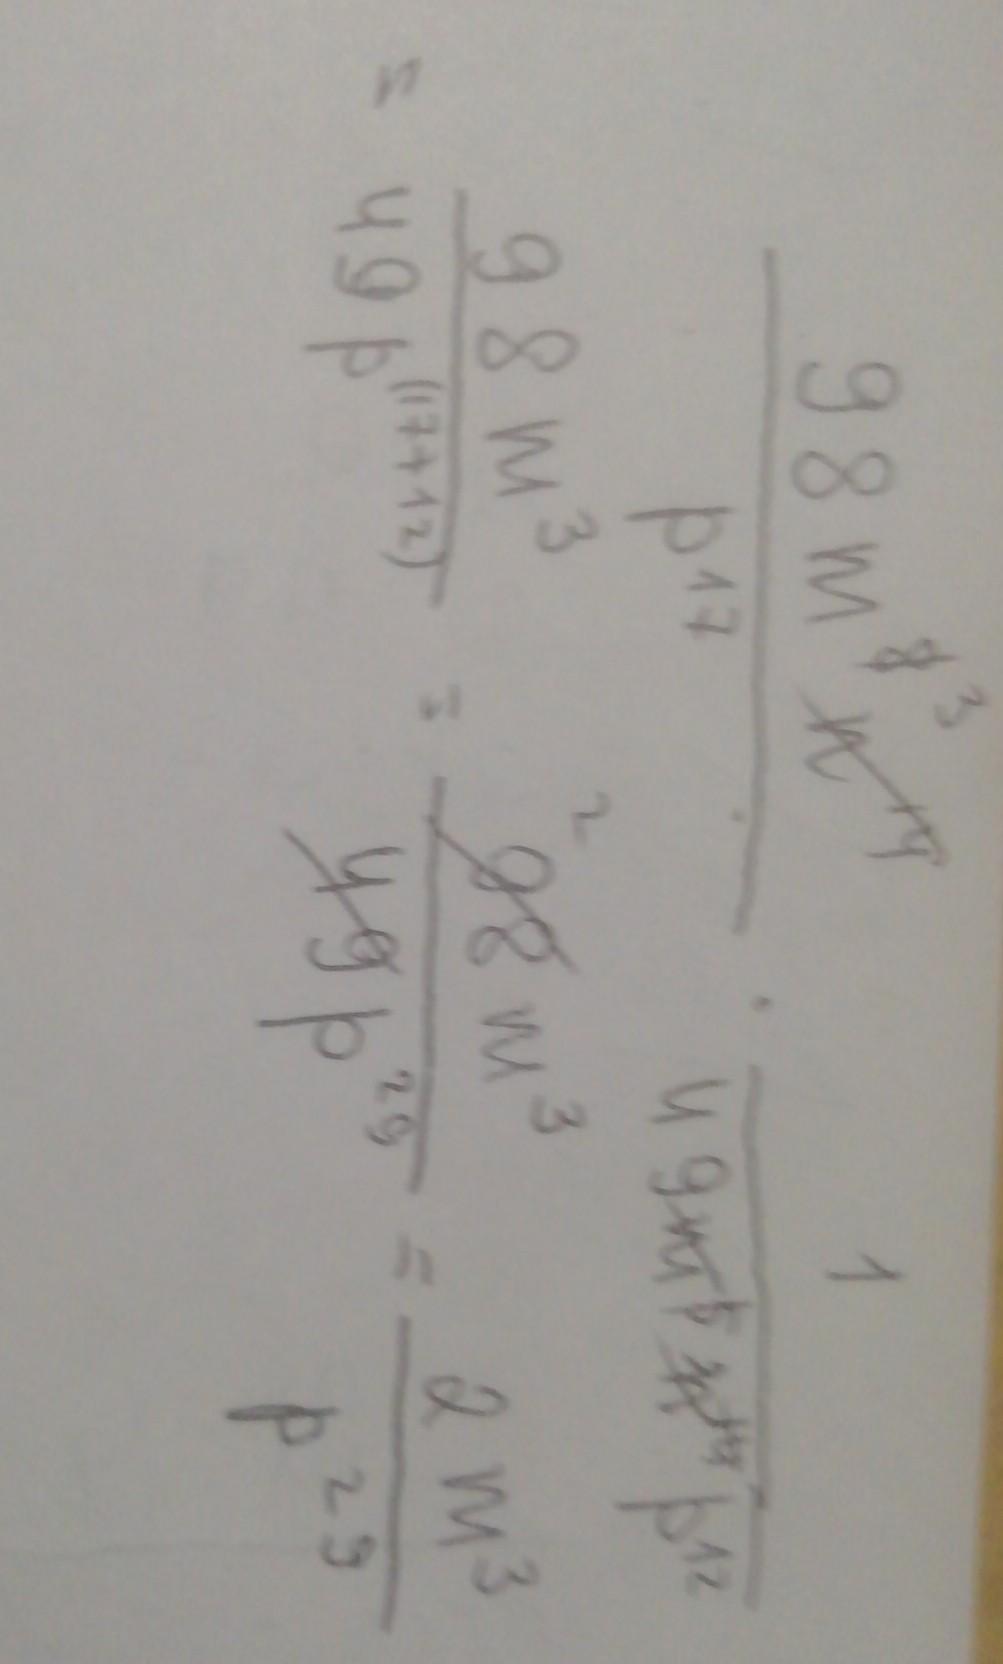 98m⁸ ³ n¹⁴ / p¹⁷ · 1 / 49m⁵n¹⁴p¹²
= 98m³ / 49p⁽¹⁷⁺¹²⁾ = ² 98m³ / 49p²⁹ = 2m³ / p²⁹